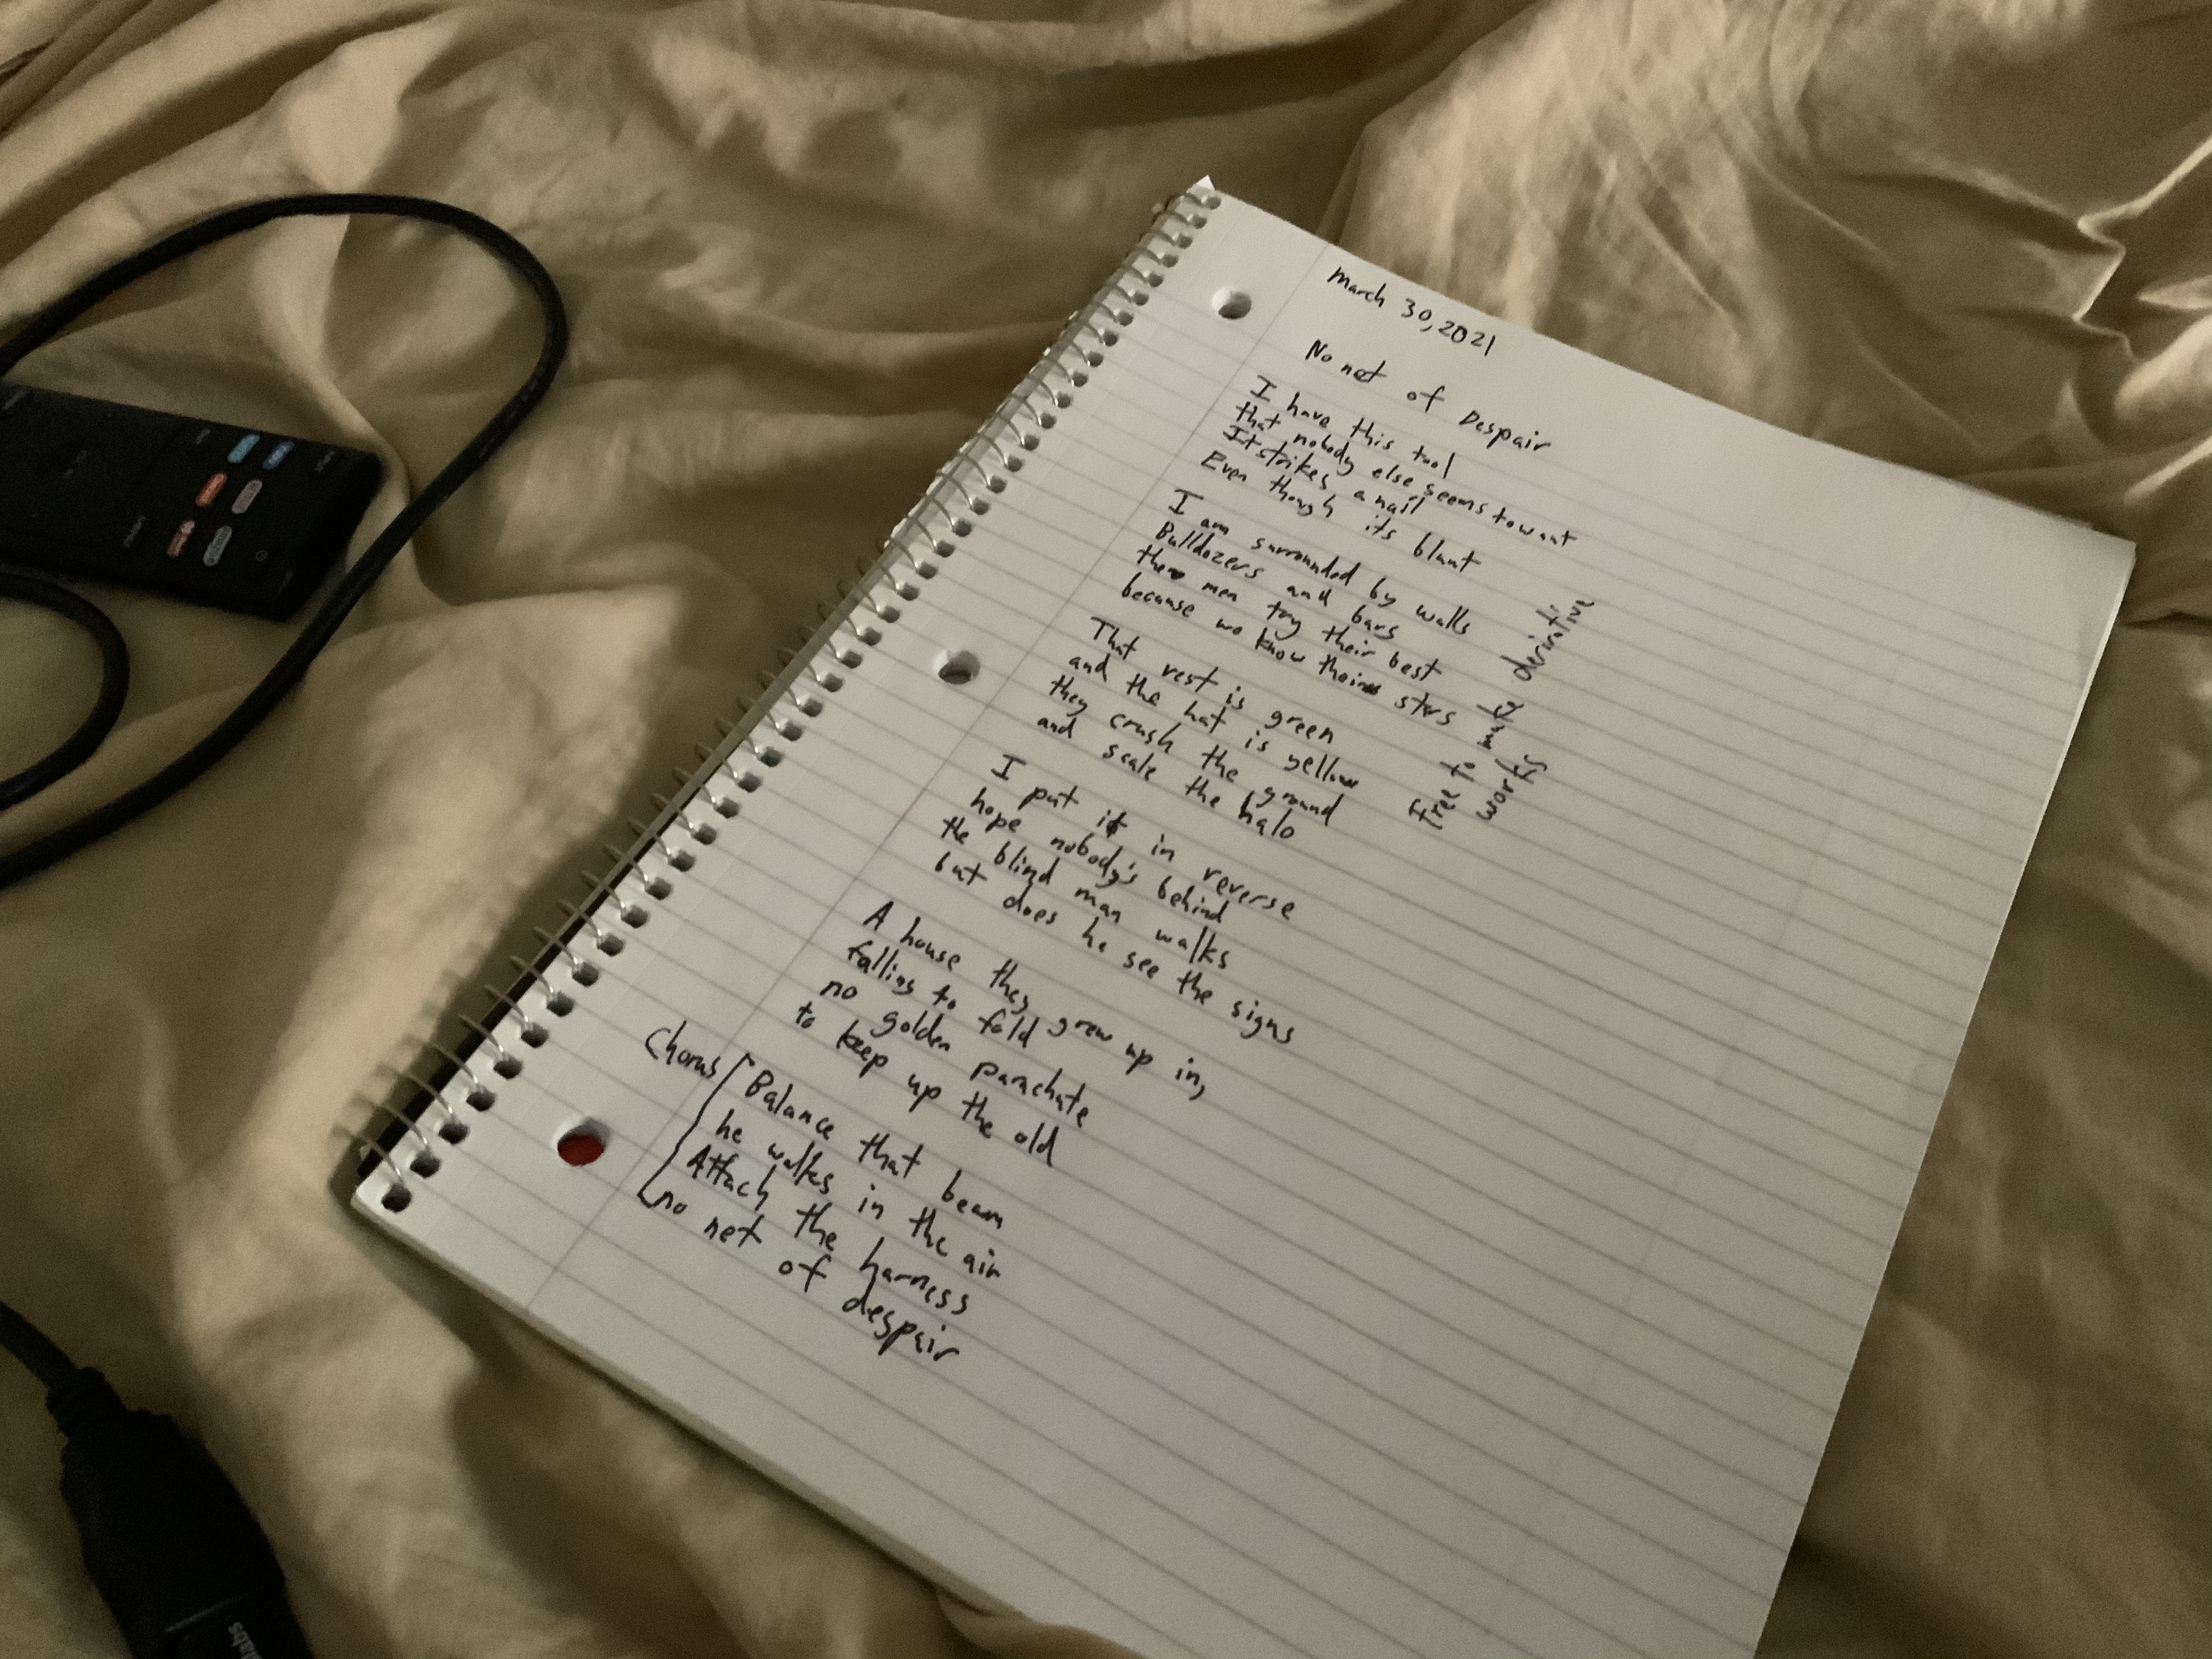 March 30, 2021
No net of Despair
I have this tool
that nobody else seems to want
It strikes a nail
Even though its blunt
I am surrounded by walls
Bulldozers and bars
the men try their best
because we know their stars
That vest is green
and the hat is yellow
they crush the ground
and scale the halo
I put it in reverse
hope nobody's behind
the blind man walks
but does he see the signs
A house they grew up in,
falling to fold
no golden parachute
to keep up the old
Chorus
Balance that beam
he walks in the air
Attach the harness
no net of despair
free to make derivative
works
labs